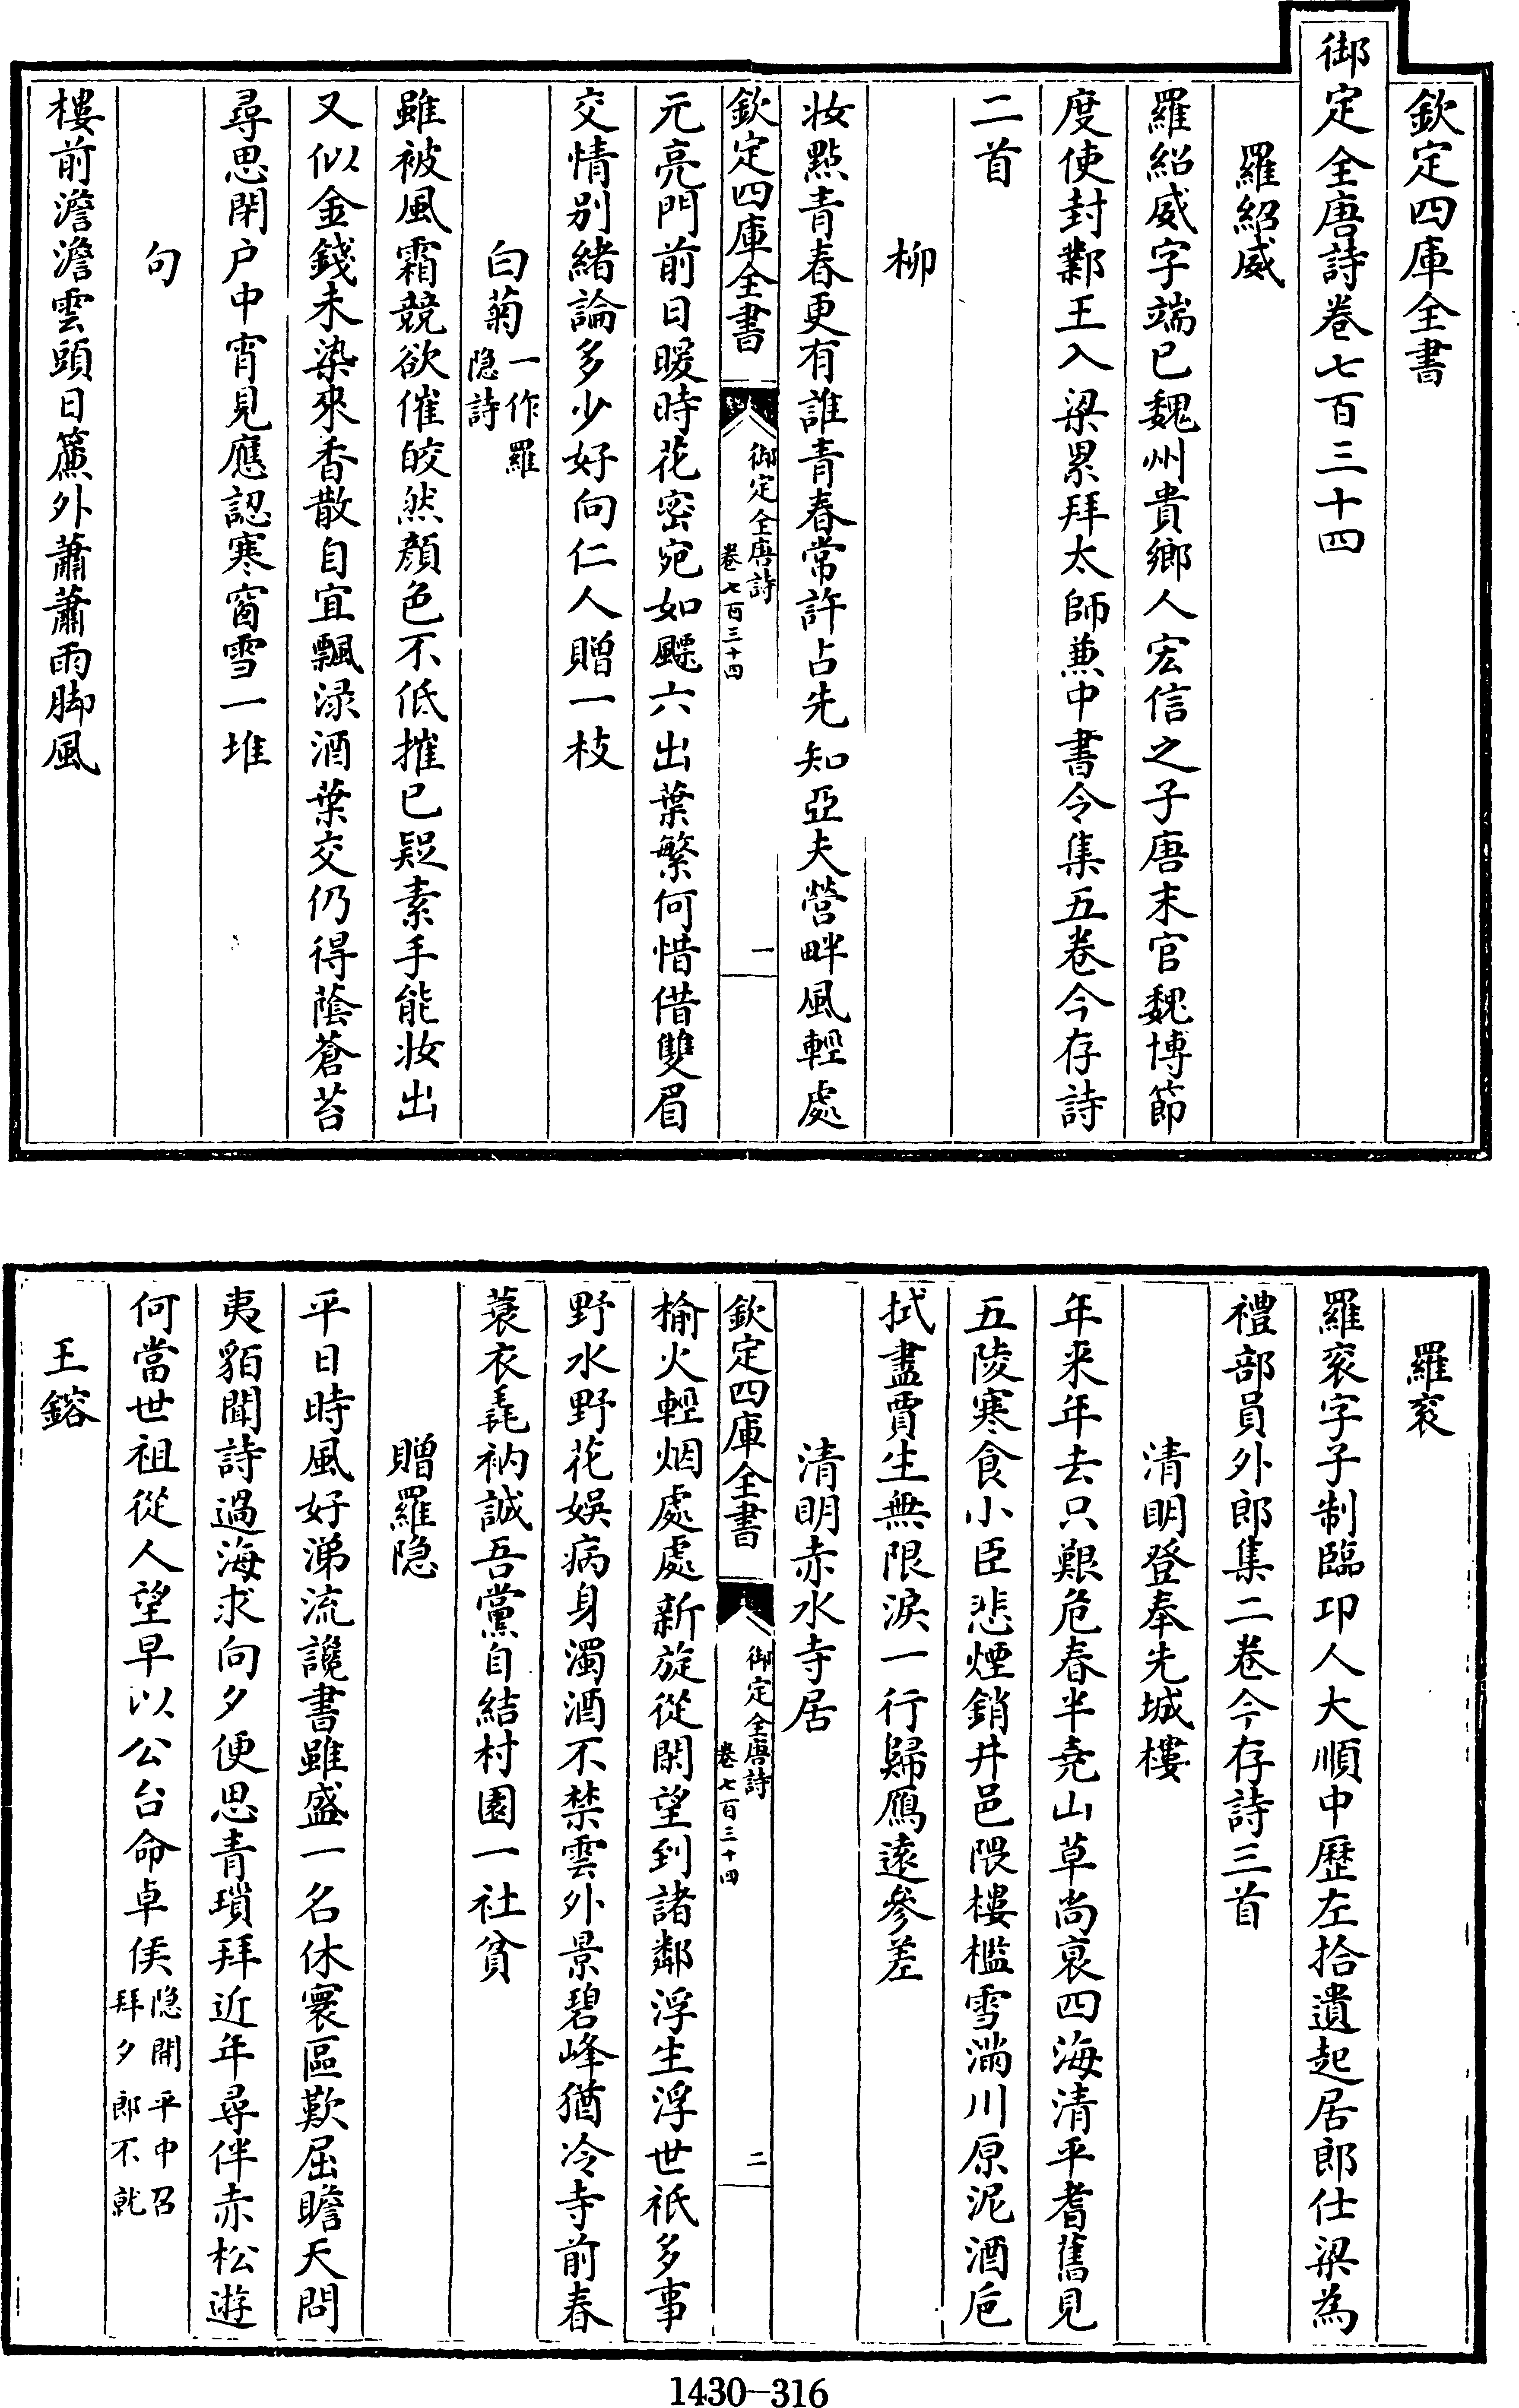 欽定四庫全書
御定全唐詩卷七百三十四
羅紹威
羅紹威字端已魏州貴鄉人宏信之子唐末官魏博節
度使封鄴王入梁累拜太師兼中書令集五卷今存詩
二首
柳
妝點青春更有誰青春常許占先知亞夫營畔風輕處
欽定四庫全書
御定全唐詩
卷七百三十四
一
元亮門前日暖時花密宛如飄六出葉繁何惜借雙眉
交情別緒論多少好向仁人贈一枝
白菊一作羅
隐詩
雖被風霜競欲催皎然顏色不低摧已疑素手能妝出
又似金錢未染來香散自宜飄淥酒葉交仍得蔭蒼苔
尋思閉户中宵見應認寒窗雪一堆
句
樓前澹澹雲頭日簾外蕭蕭雨脚風
羅衮
羅衮字子制臨邛人大順中歷左拾遺起居郎仕梁為
禮部員外郎集二卷今存詩三首
清明登奉先城樓
年来年去只艱危春半堯山草尚衰四海清平耆舊見
五陵寒食小臣悲煙銷井邑隈樓檻雪滿川原泥酒巵
拭盡賈生無限淚一行歸鴈遠參差
清明赤水寺居
欽定四庫全書
御定全唐詩
卷七百三十四
二
榆火輕烟處處新旋從閑望到諸鄰浮生浮世祇多事
野水野花娛病身濁酒不禁雲外景碧峰猶冷寺前春
蓑衣毳衲誠吾黨自結村園一社貧
贈羅隐
平日時風好涕流讒書雖盛一名休寰區歎屈瞻天問
夷貊聞詩過海求向夕便思青瑣拜近年尋伴赤松遊
何當世祖從人望早以公台命卓侯隐開平中召
拜夕郎不就
王鎔
1430-316